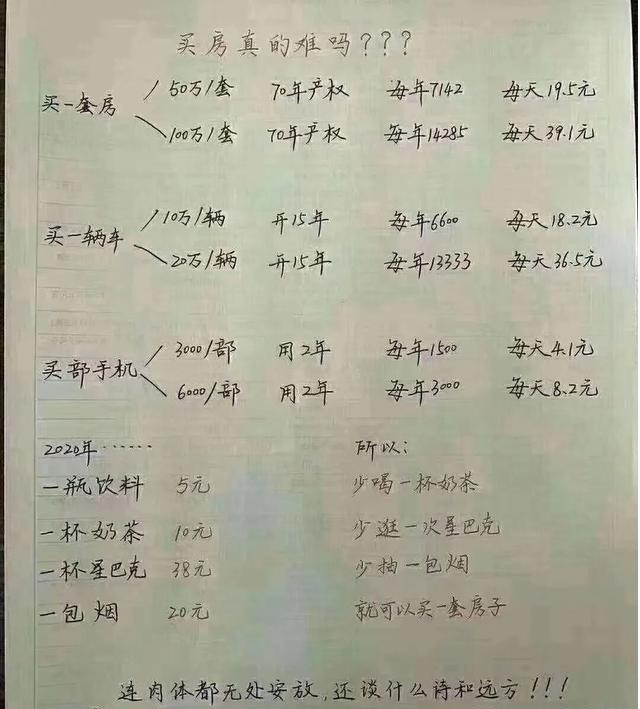 买房真的难吗???
买一套房 50万/套 70年产权 每年7142 每天19.5元
100万/套 70年产权 每年14285 每天39.1元
买一辆车 10万/辆 开15年 每年6600 每天18.2元
20万/辆 开15年 每年13333 每天36.5元
买部手机 3000/部 用2年 每年1500 每天4.1元
6000/部 用2年 每年3000 每天8.2元
2020年…… 所以:
一瓶饮料 5元 少喝一杯奶茶
一杯奶茶 10元 少逛一次星巴克
一杯星巴克 38元 少抽一包烟
一包烟 20元 就可以买一套房子
连肉体都无处安放,还谈什么诗和远方!!!